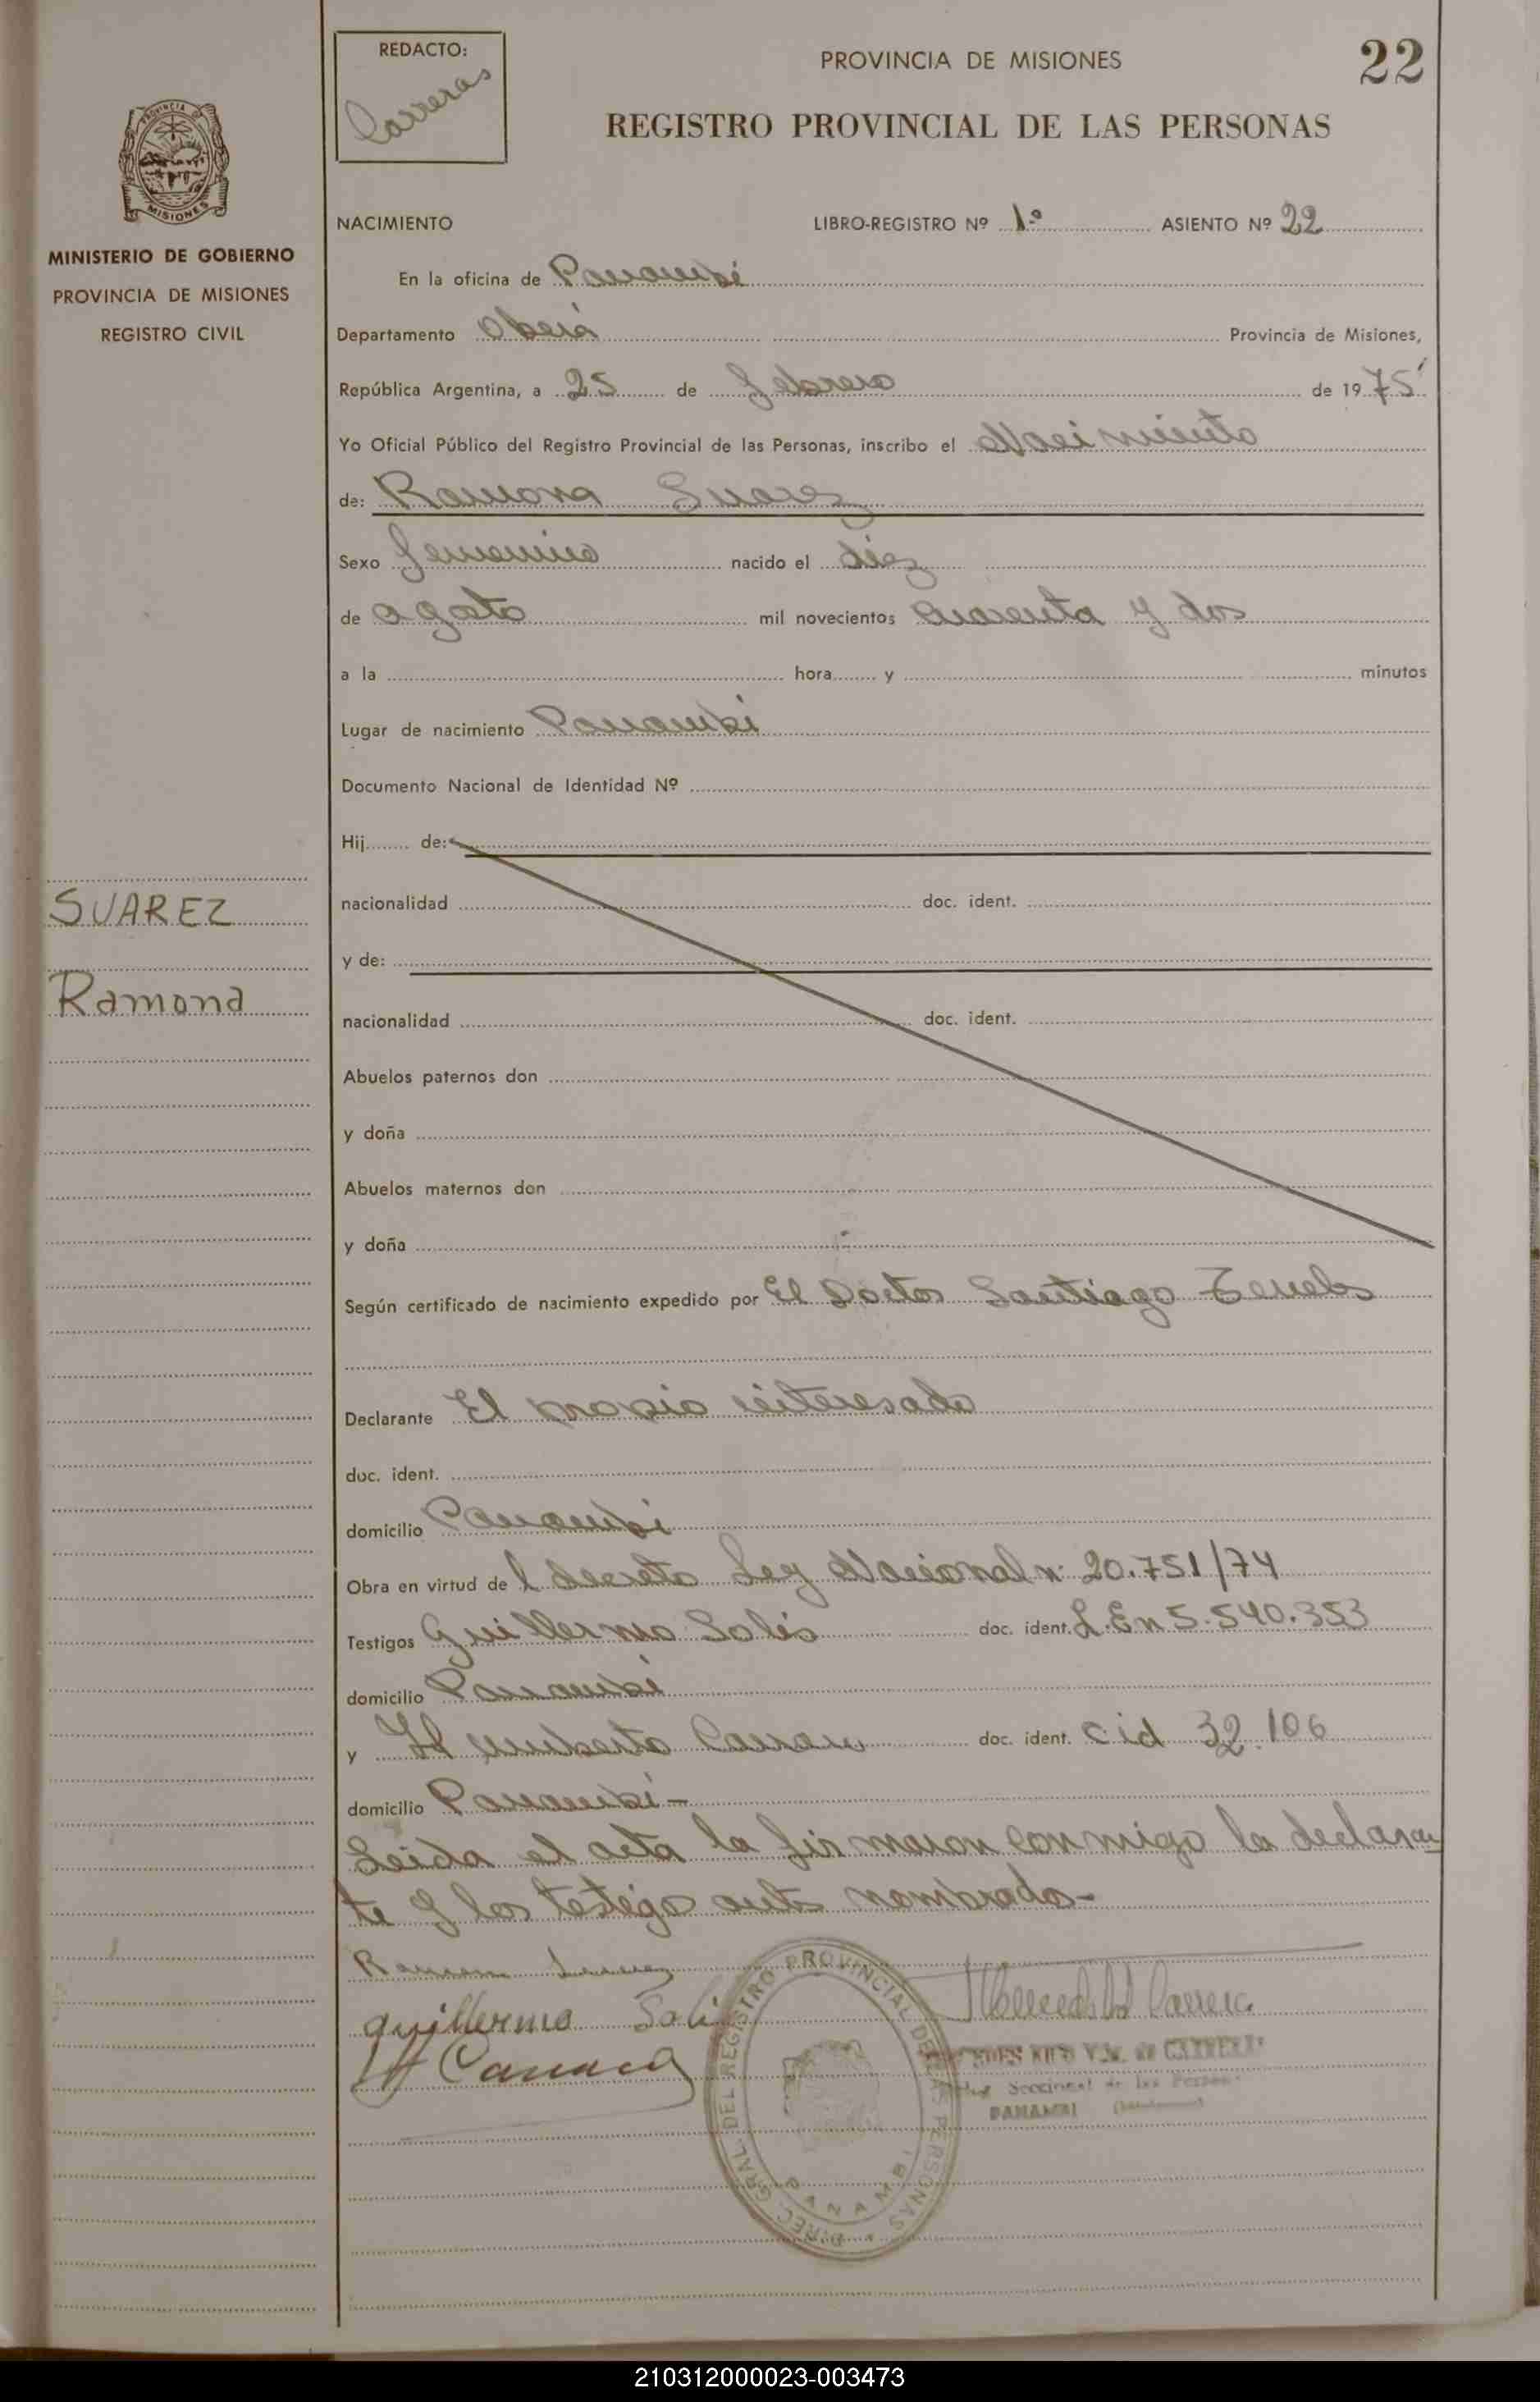 REDACTO:
Carreras
PROVINCIA DE MISIONES
22
REGISTRO PROVINCIAL DE LAS PERSONAS
MISIONES
MINISTERIO DE GOBIERNO
PROVINCIA DE MISIONES
REGISTRO CIVIL
NACIMIENTO LIBRO-REGISTRO Nº 1º ASIENTO Nº 22
En la oficina de Panambí
Departamento Oberá Provincia de Misiones,
República Argentina, a 25 de febrero de 1975
Yo Oficial Público del Registro Provincial de las Personas, inscribo el Nacimiento
de: Ramona Suarez
Sexo femenino nacido el diez
de agosto mil novecientos cuarenta y dos
a la hora y minutos
Lugar de nacimiento Panambí
Documento Nacional de Identidad Nº
Hij de:
SUAREZ
nacionalidad doc. ident.
y de:
Ramona
nacionalidad doc. ident.
Abuelos paternos don
y doña
Abuelos maternos don
y doña
Según certificado de nacimiento expedido por El Doctor Santiago
Declarante El propio interesado
doc. ident.
domicilio Panambí
Obra en virtud de l decreto Ley Nacional n: 20.751/74
Testigos Guillermo Solis doc. ident. L.E n 5.540.353
domicilio Panambí
y H umberto doc. ident. C id 32.106
domicilio Panambí-
Leida el acta la firmaron conmigo la declaran
te y los testigo ante nombrado-
Ramona Suarez
guillermo Soli
DIREC. GRAL DEL REGISTRO PROVINCIAL DE LAS PERSONAS
PANAMBI
Seccional de las
PANAMBI
210312000023-003473